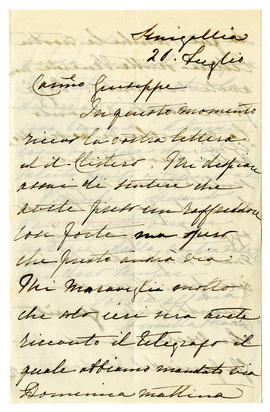 Sinigallia
20. Luglio
Carino Giuseppe
In questo momento
ricevo la vostra lettera
ed il Clistero. Mi dispiace
assai di sentire che
avete preso un raffreddore
così forte ma spero
che presto andrà via
Mi maraviglio molto
che solo ieri sera avete
ricevuto il telegrafo il
quale abbiamo mandato via
Domenica mattina